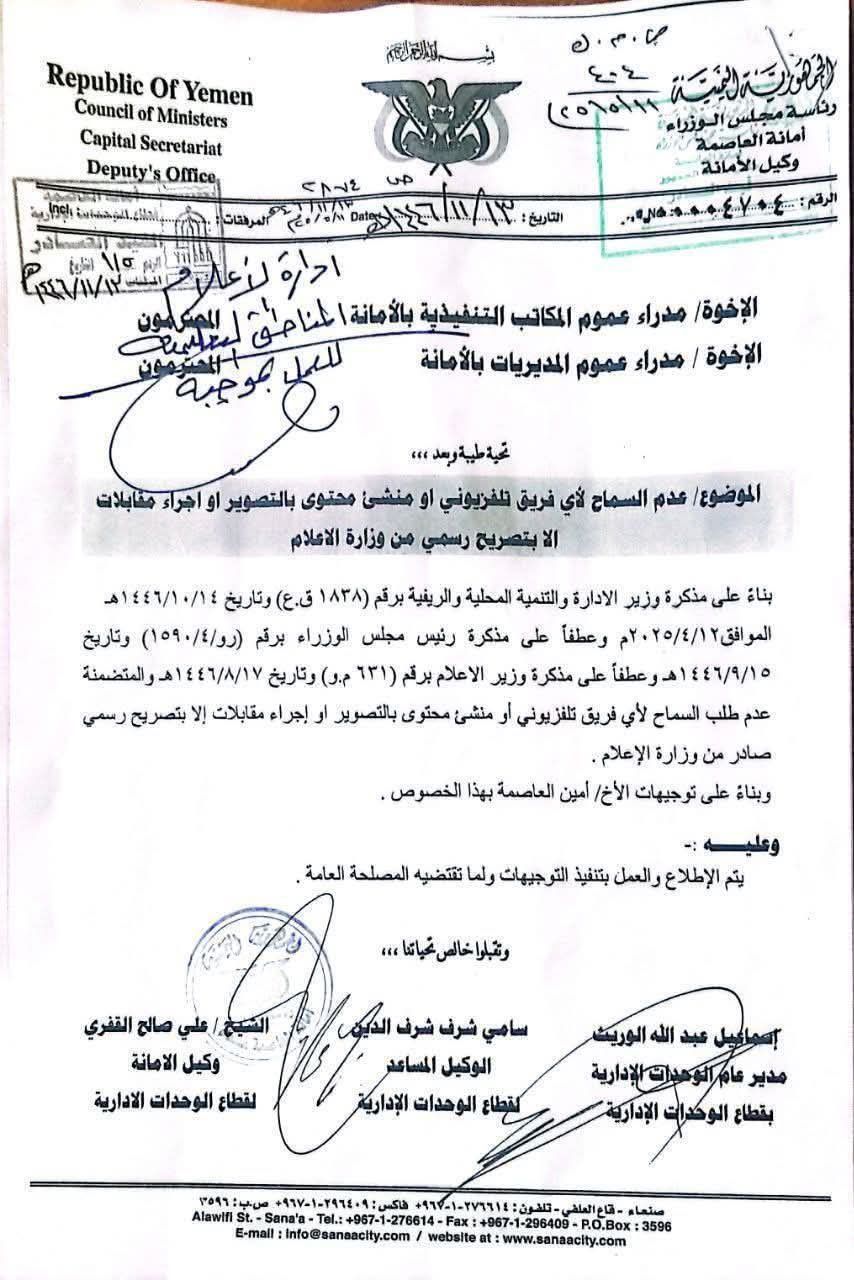 بسم الله الرحمن الرحيم
Republic Of Yemen
Council of Ministers
Capital Secretariat
Deputy's Office
الجمهورية اليمنية
رئاسة مجلس الوزراء
أمانة العاصمة
وكيل الأمانة
٤٠٤
الرقم : ٤٧٠٤
التاريخ : ١٤٤٦/١١/١٣هـ
Date
المرفقات :
الرقم
التاريخ
١٤٤٦/١١/١٣هـ
ادارة الاعلام
المناطق التعليمية
للعمل بموجبه
الإخوة/ مدراء عموم المكاتب التنفيذية بالأمانة المحترمون
الإخوة / مدراء عموم المديريات بالأمانة المحترمون
تحية طيبة وبعد ،،،
الموضوع/ عدم السماح لأي فريق تلفزيوني او منشئ محتوى بالتصوير او اجراء مقابلات
الا بتصريح رسمي من وزارة الاعلام
بناءً على مذكرة وزير الادارة والتنمية المحلية والريفية برقم (١٨٣٨ ق.ع) وتاريخ ١٤٤٦/١٠/١٤هـ
الموافق٢٠٢٥/٤/١٢م وعطفاً على مذكرة رئيس مجلس الوزراء برقم (رو/١٥٩٠/٤) وتاريخ
١٤٤٦/٩/١٥هـ وعطفاً على مذكرة وزير الاعلام برقم (٦٣١ م.و) وتاريخ ١٤٤٦/٨/١٧هـ والمتضمنة
عدم طلب السماح لأي فريق تلفزيوني أو منشئ محتوى بالتصوير او إجراء مقابلات إلا بتصريح رسمي
صادر من وزارة الإعلام .
وبناءً على توجيهات الأخ/ أمين العاصمة بهذا الخصوص .
وعليـــه :-
يتم الإطلاع والعمل بتنفيذ التوجيهات ولما تقتضيه المصلحة العامة .
وتقبلوا خالص تحياتنا ،،،
إسماعيل عبد الله الوريث
مدير عام الوحدات الإدارية
بقطاع الوحدات الإدارية
سامي شرف شرف الدين
الوكيل المساعد
لقطاع الوحدات الإدارية
الشيخ / علي صالح القفري
وكيل الامانة
لقطاع الوحدات الادارية
صنعاء - قاع العلفي - تلفون : ٢٧٦٦١٤-١-٩٦٧+ فاكس : ٢٩٦٤٠٩-١-٩٦٧+ ص.ب : ٣٥٩٦
Alawlfi St. - Sana'a - Tel.: +967-1-276614 - Fax : +967-1-296409 - P.O.Box : 3596
E-mail : info@sanaacity.com / website at : www.sanaacity.com